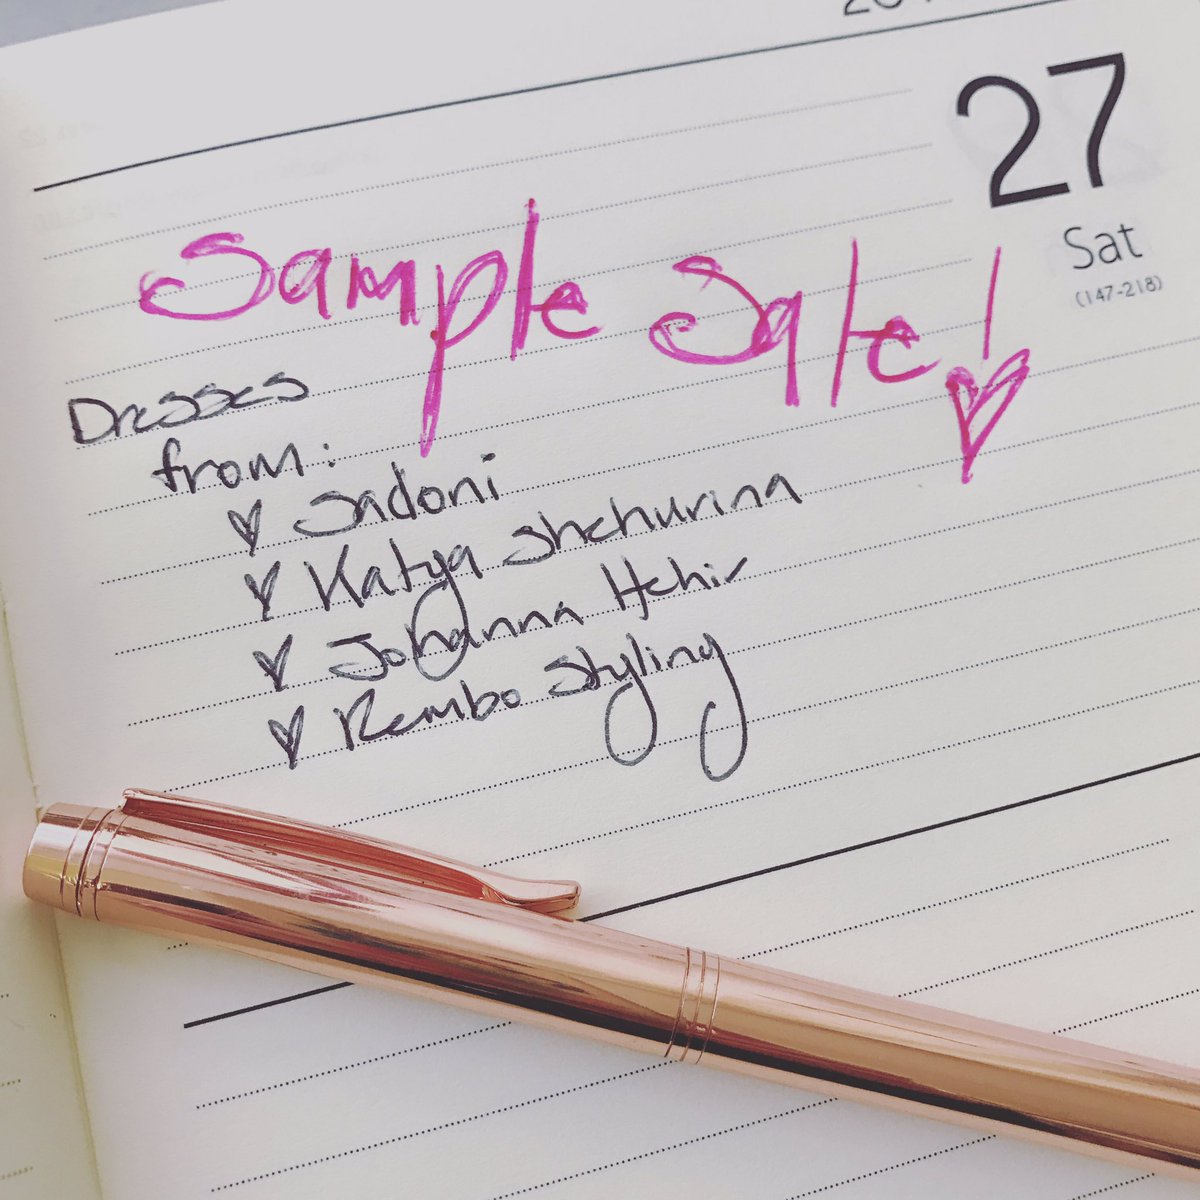 27
Sat
(147-218)
Sample Sale!
Dresses
from:
Sadoni
Katya Shehurina
Johanna Hehir
Rembo Styling